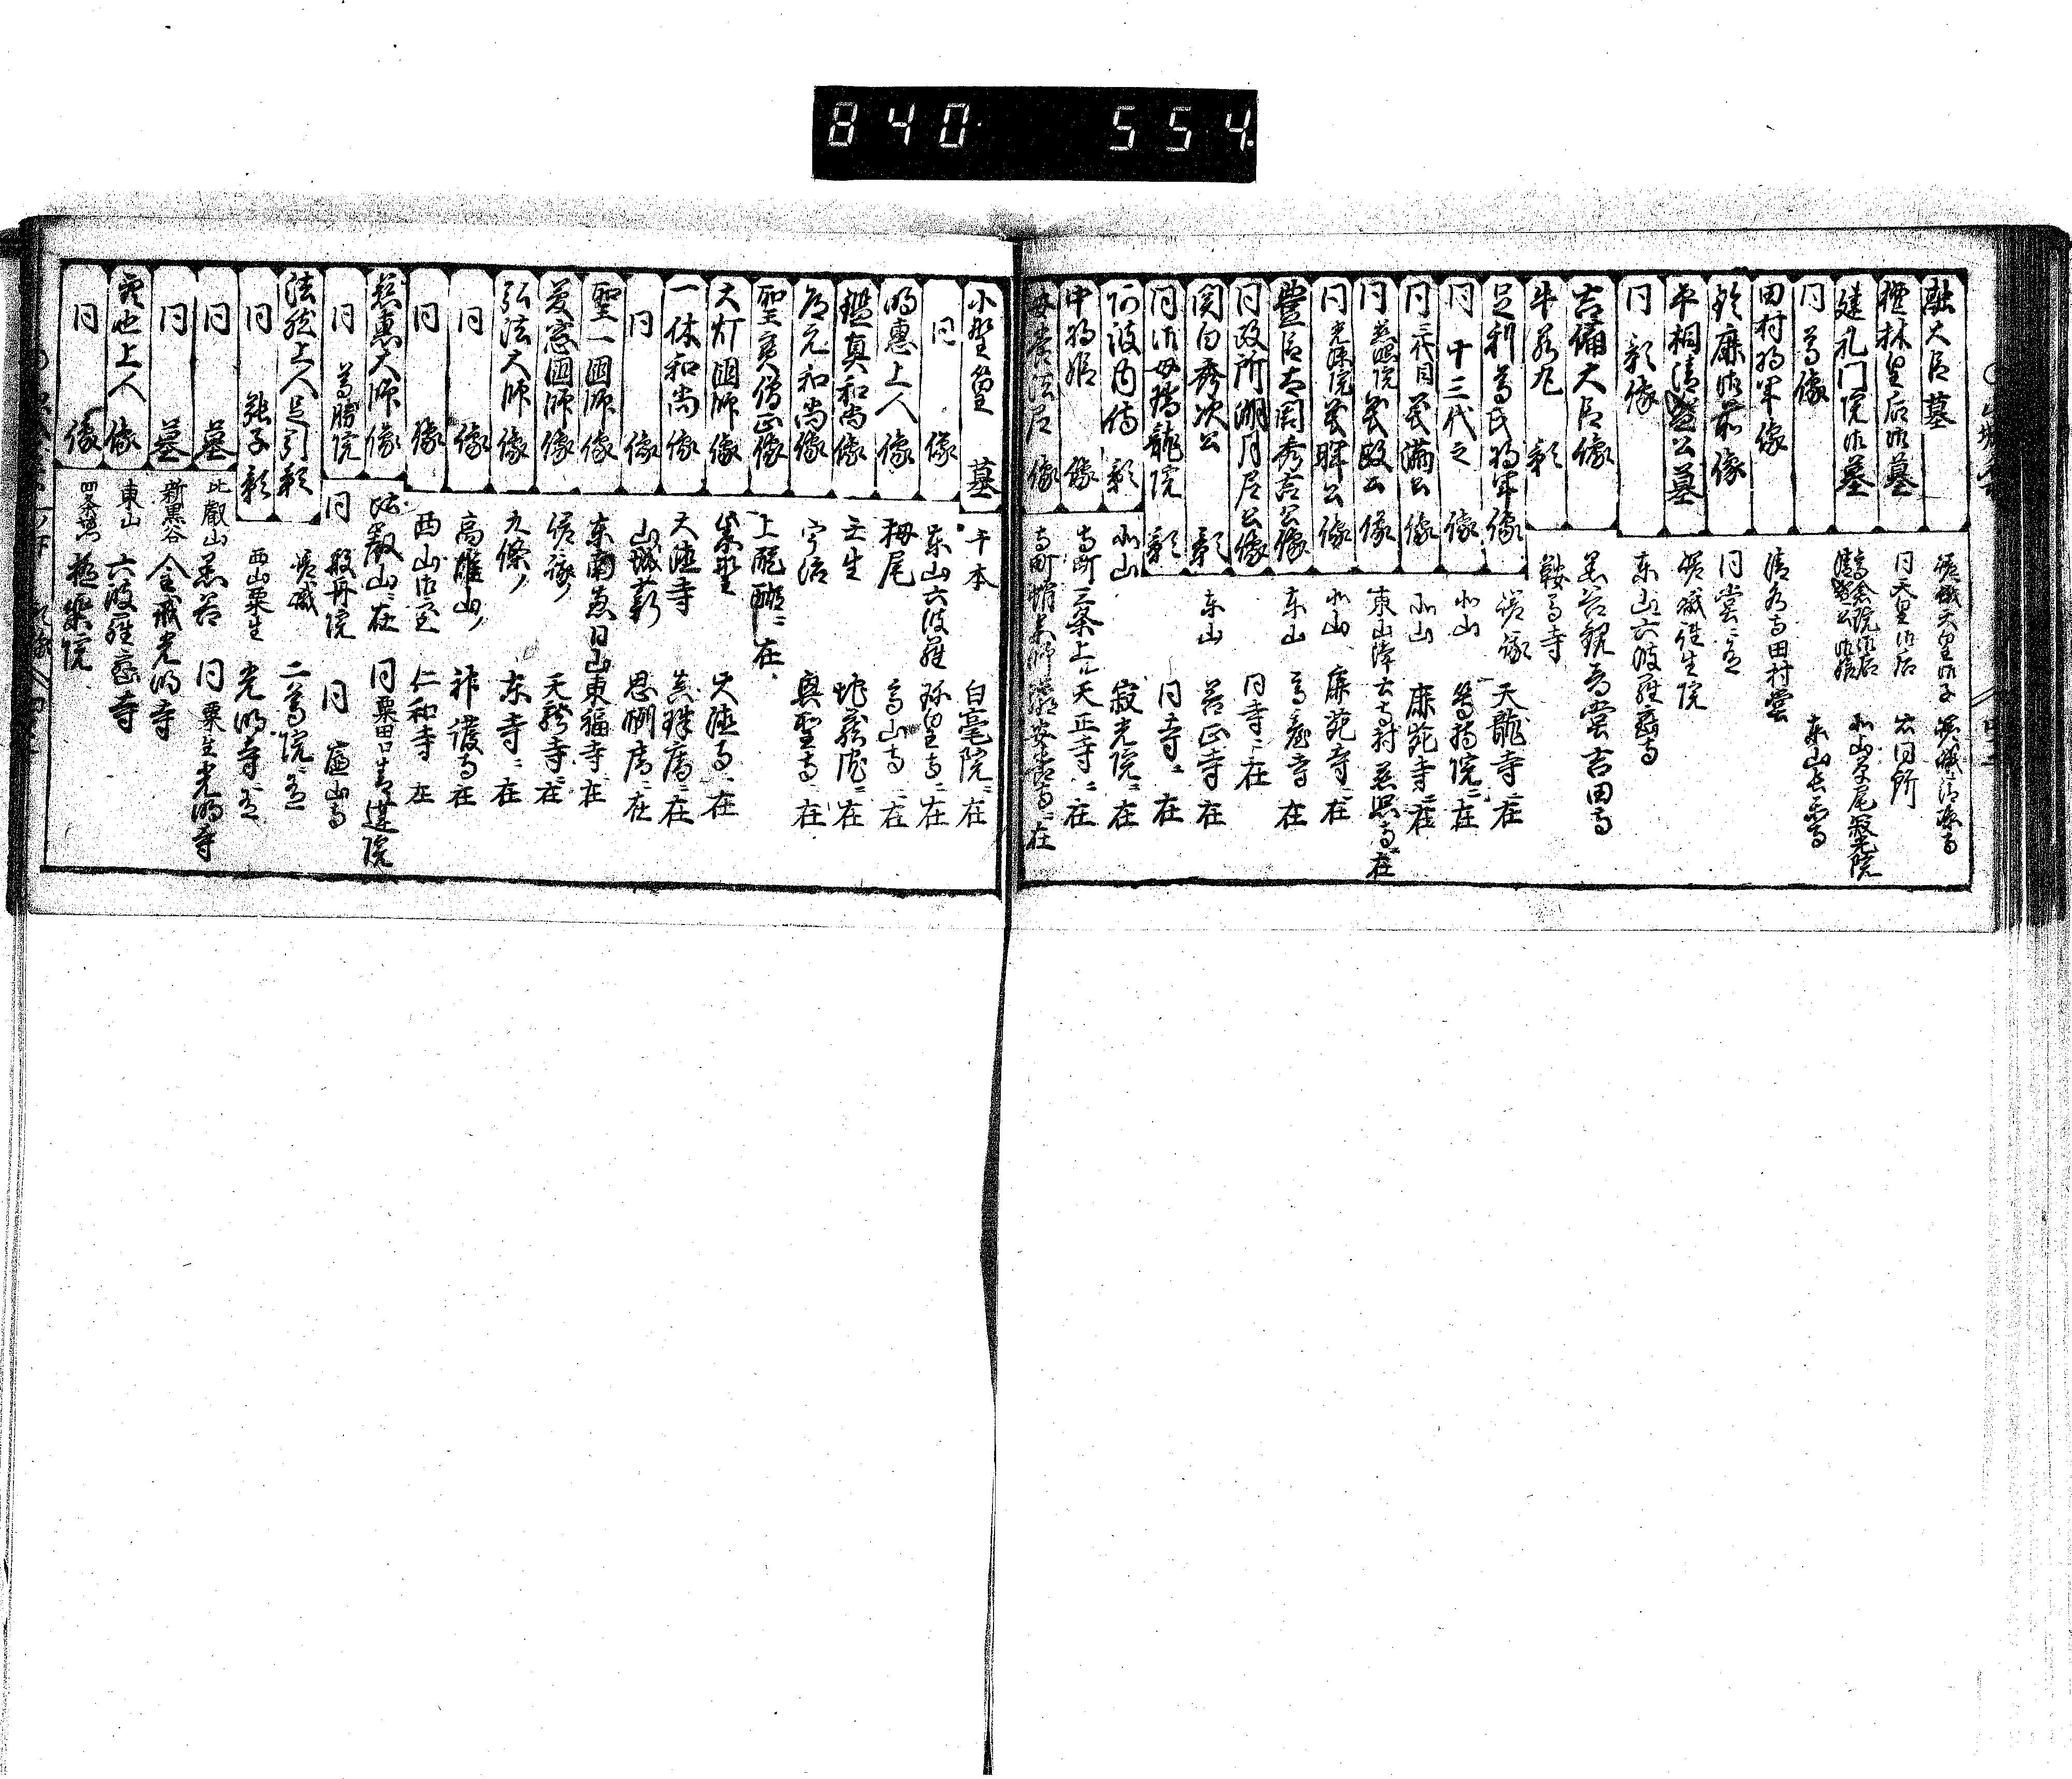 840 554
融大臣墓 嵯峨天皇御子 嵯峨清凉寺
檀林皇后御墓 同天皇御后 右同所
建礼門院御墓 高倉院御后 清盛公御娘 北山 寂光院
同 尊像 東山長楽寺
田村将軍像 清水寺田村堂
鈴鹿御前像 同堂ニ有
平相清盛公墓 嵯峨往生院
同 影像 東山六波羅密寺
吉備大臣像 吉田寺
牛若丸 影 鞍馬寺
足利尊氏将軍像 嵯峨 天龍寺ニ在
同 十三代之 像 北山 等持院ニ在
同 三代目 義満公 像 北山 鹿苑寺ニ在
同 慈照院義政公 像 東山浄土寺村慈照寺ニ在
同 光源院義輝公 像 北山 鹿苑寺ニ在
豊臣太閤秀吉公像 東山 高臺寺 在
同政所湖月尼公像 同寺ニ在
関白秀次公 影 東山 善正寺 在
同御母瑞龍院 影 同寺ニ 在
阿波内侍 影 北山 寂光院ニ在
中将姫 像 寺町三条上ル 天正寺ニ在
安養法尼 像 寺町蛸薬師 安養寺ニ在
小野篁 墓 千本 白毫院ニ在
同 像 東山六波羅 珍皇寺ニ在
明惠上人 像 栂尾 高山寺ニ在
鑑真和尚像 壬生 地蔵院ニ在
道元和尚像 宇治 興聖寺ニ在
聖寳僧正像 上醍醐ニ在
大灯國師像 紫野 大徳寺ニ在
一休和尚像 大徳寺 真珠庵ニ在
同 像 山城薪 恩酬庵ニ在
聖一國師像 東南惠日山東福寺ニ在
夢窓國師像 嵯峨ノ 天龍寺ニ在
弘法大師 像 九條ノ 東寺ニ在
同 像 高雄山ノ 神護寺在
同 像 西山御室 仁和寺 在
慈惠大師 像 比叡山ニ在 同粟田口青蓮院
同 尊勝院 同 般舟院 同 廬山寺
法然上人足引影 嵯峨 二尊院ニ有
同 張子影 西山粟生 光明寺ニ有
同 墓 比叡山 黒谷 同粟生光明寺
同 墓 新黒谷 金戒光明寺
空也上人 像 東山 六波羅密寺
同 像 四条坊門 極楽院